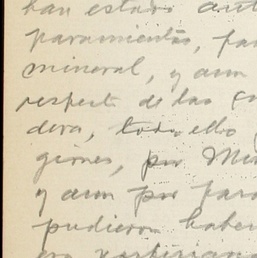 han estado aut
paramientos, pa
mineral, y aun
respecto de las
dera, todo ello
giones, por Min
y aun por para
pudieron haber